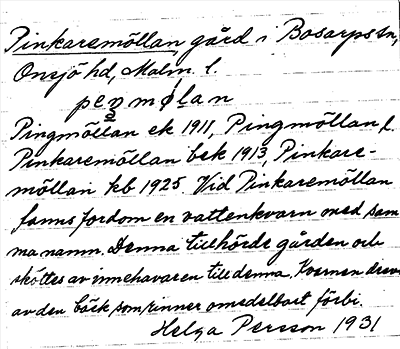 Pinkaremöllan, gård i Bosarps sn,
Onsjö hd, Malm. l.
peŋmølan
Pingmöllan ek 1911, Pingmöllan l.
Pinkaremöllan bek 1913, Pinkare-
möllan kb 1925. Vid Pinkaremöllan
fanns fordom en vattenkvarn med sam
ma namn. Denna tillhörde gården och
sköttes av innehavaren till denna. Kvarnen drevs
av den bäck, som rinner omedelbart förbi.
Helga Persson 1931